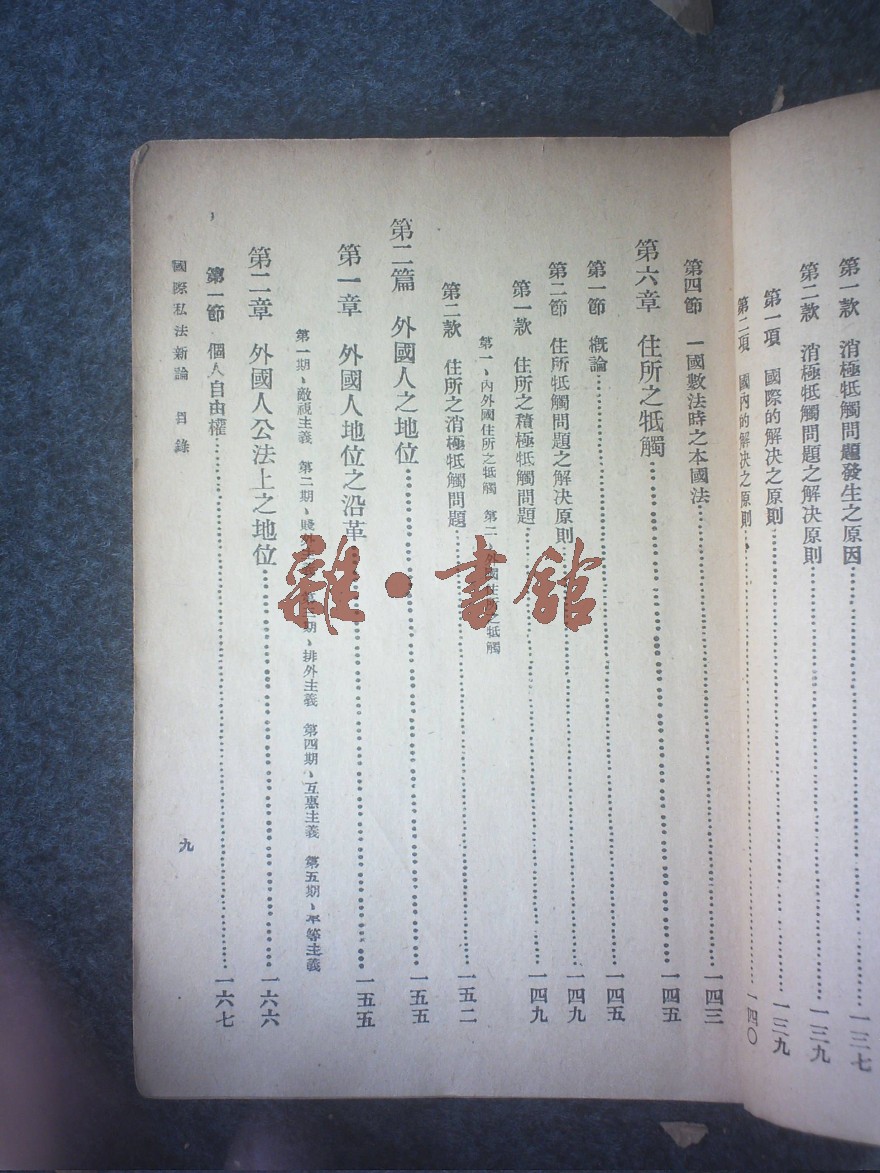 第一款　消極牴觸問題發生之原因……一三七
第二款　消極牴觸問題之解決原則……一三九
第一項　國際的解決之原則……一三九
第二項　國內的解決之原則……一四〇
第四節　一國數法時之本國法……一四三
第六章　住所之牴觸……一四五
第一節　槪論……一四五
第二節　住所牴觸問題之解決原則……一四九
第一款　住所之積極牴觸問題……一四九
第一、內外國住所之牴觸　第二、外國住所之牴觸
第二款　住所之消極牴觸問題……一五二
第二篇　外國人之地位……一五五
第一章　外國人地位之沿革……一五五
第一期、敵視主義　第二期、賤外主義　第三期、排外主義　第四期、互惠主義　第五期、平等主義
第二章　外國人公法上之地位……一六六
第一節　個人自由權……一六七
國際私法新論　目錄
九
雜·書館